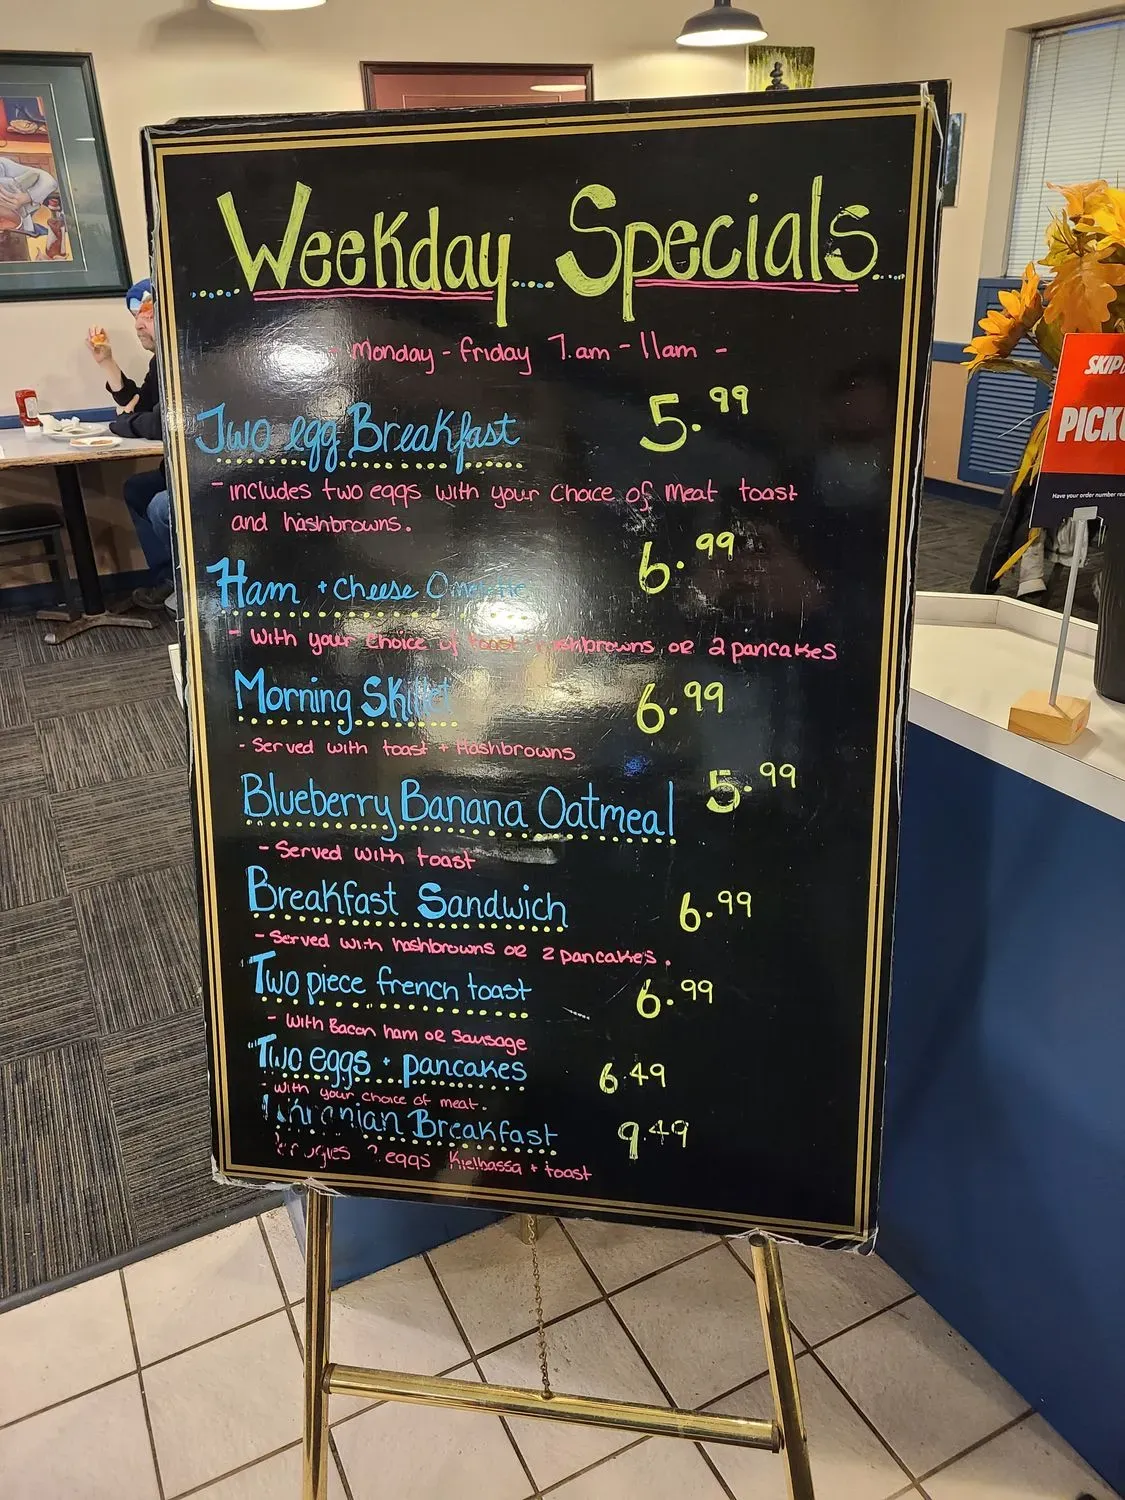 Weekday Specials
- Monday - friday 7am - 11am -
Two egg Breakfast 5.99
- includes two eggs with your choice of meat toast
and hashbrowns.
Ham + cheese 6.99
- with your choice of toast hashbrowns or 2 pancakes
Morning Skillet 6.99
- Served with toast + Hashbrowns
Blueberry Banana Oatmeal 5.99
- Served with toast
Breakfast Sandwich 6.99
- Served with hashbrowns or 2 pancakes.
Two piece french toast 6.99
- with Bacon ham or Sausage
Two eggs + pancakes 6.49
- with your choice of meat.
Breakfast 9.49
eggs Kielbassa + toast
SKIP
PICK
Have your order number